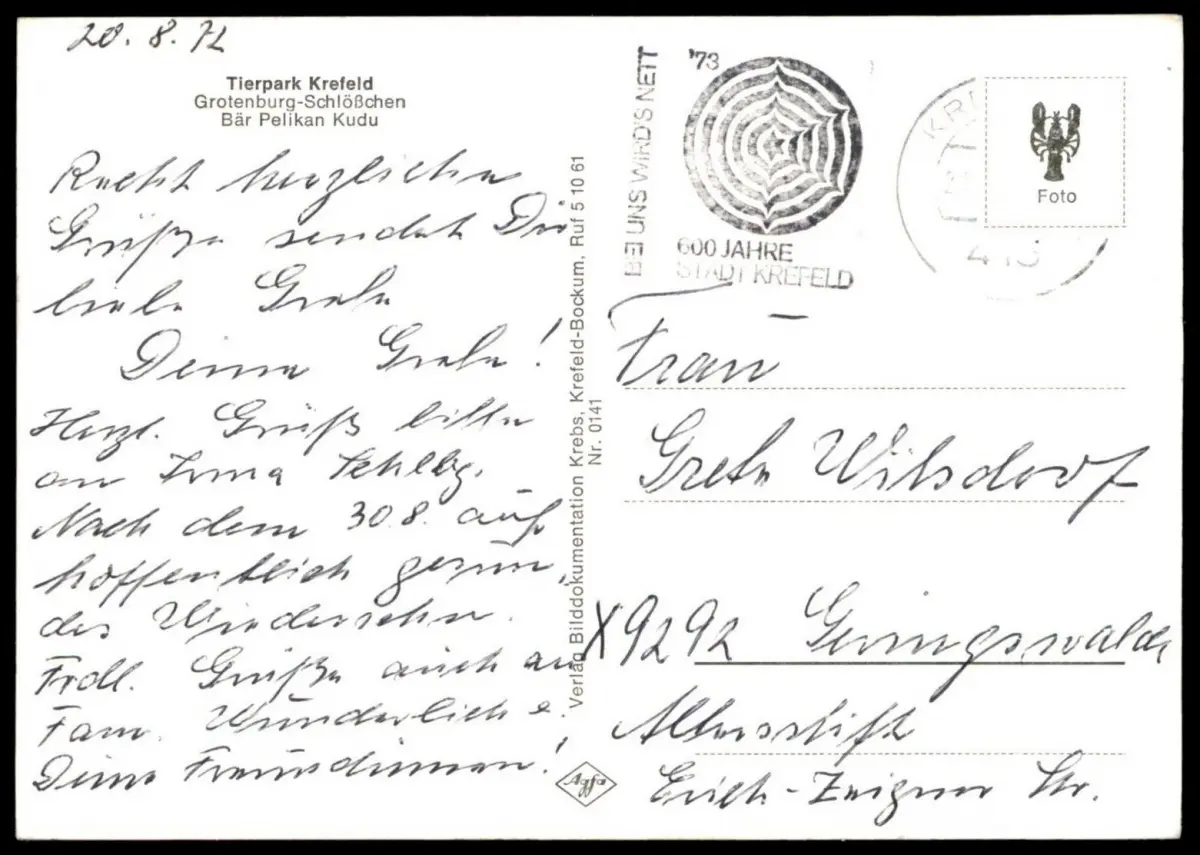 20. 8. 72
Tierpark Krefeld
Grotenburg-Schlößchen
Bär Pelikan Kudu
Recht herzliche
Grüße sendet Dir
liebe Grete
Deine Grete!
Herzl. Grüße bitte
an Irma Sehlbg.
Nach dem 30.8. auf
hoffentlich gesun-
des Wiedersehn.
Frdl. Grüße auch an
Fam. Wunderlich
Deine Freundinnen!
Verlag Bilddokumentation Krebs, Krefeld-Bockum, Ruf 5 10 61
Nr. 0141
BEI UNS WIRD'S NETT
'73
600 JAHRE
STADT KREFELD
415
Foto
Frau
Grete Wilsdorf
X9292 Geringswalde
Altersstift
Erich-Zeigner Str.
Agfa